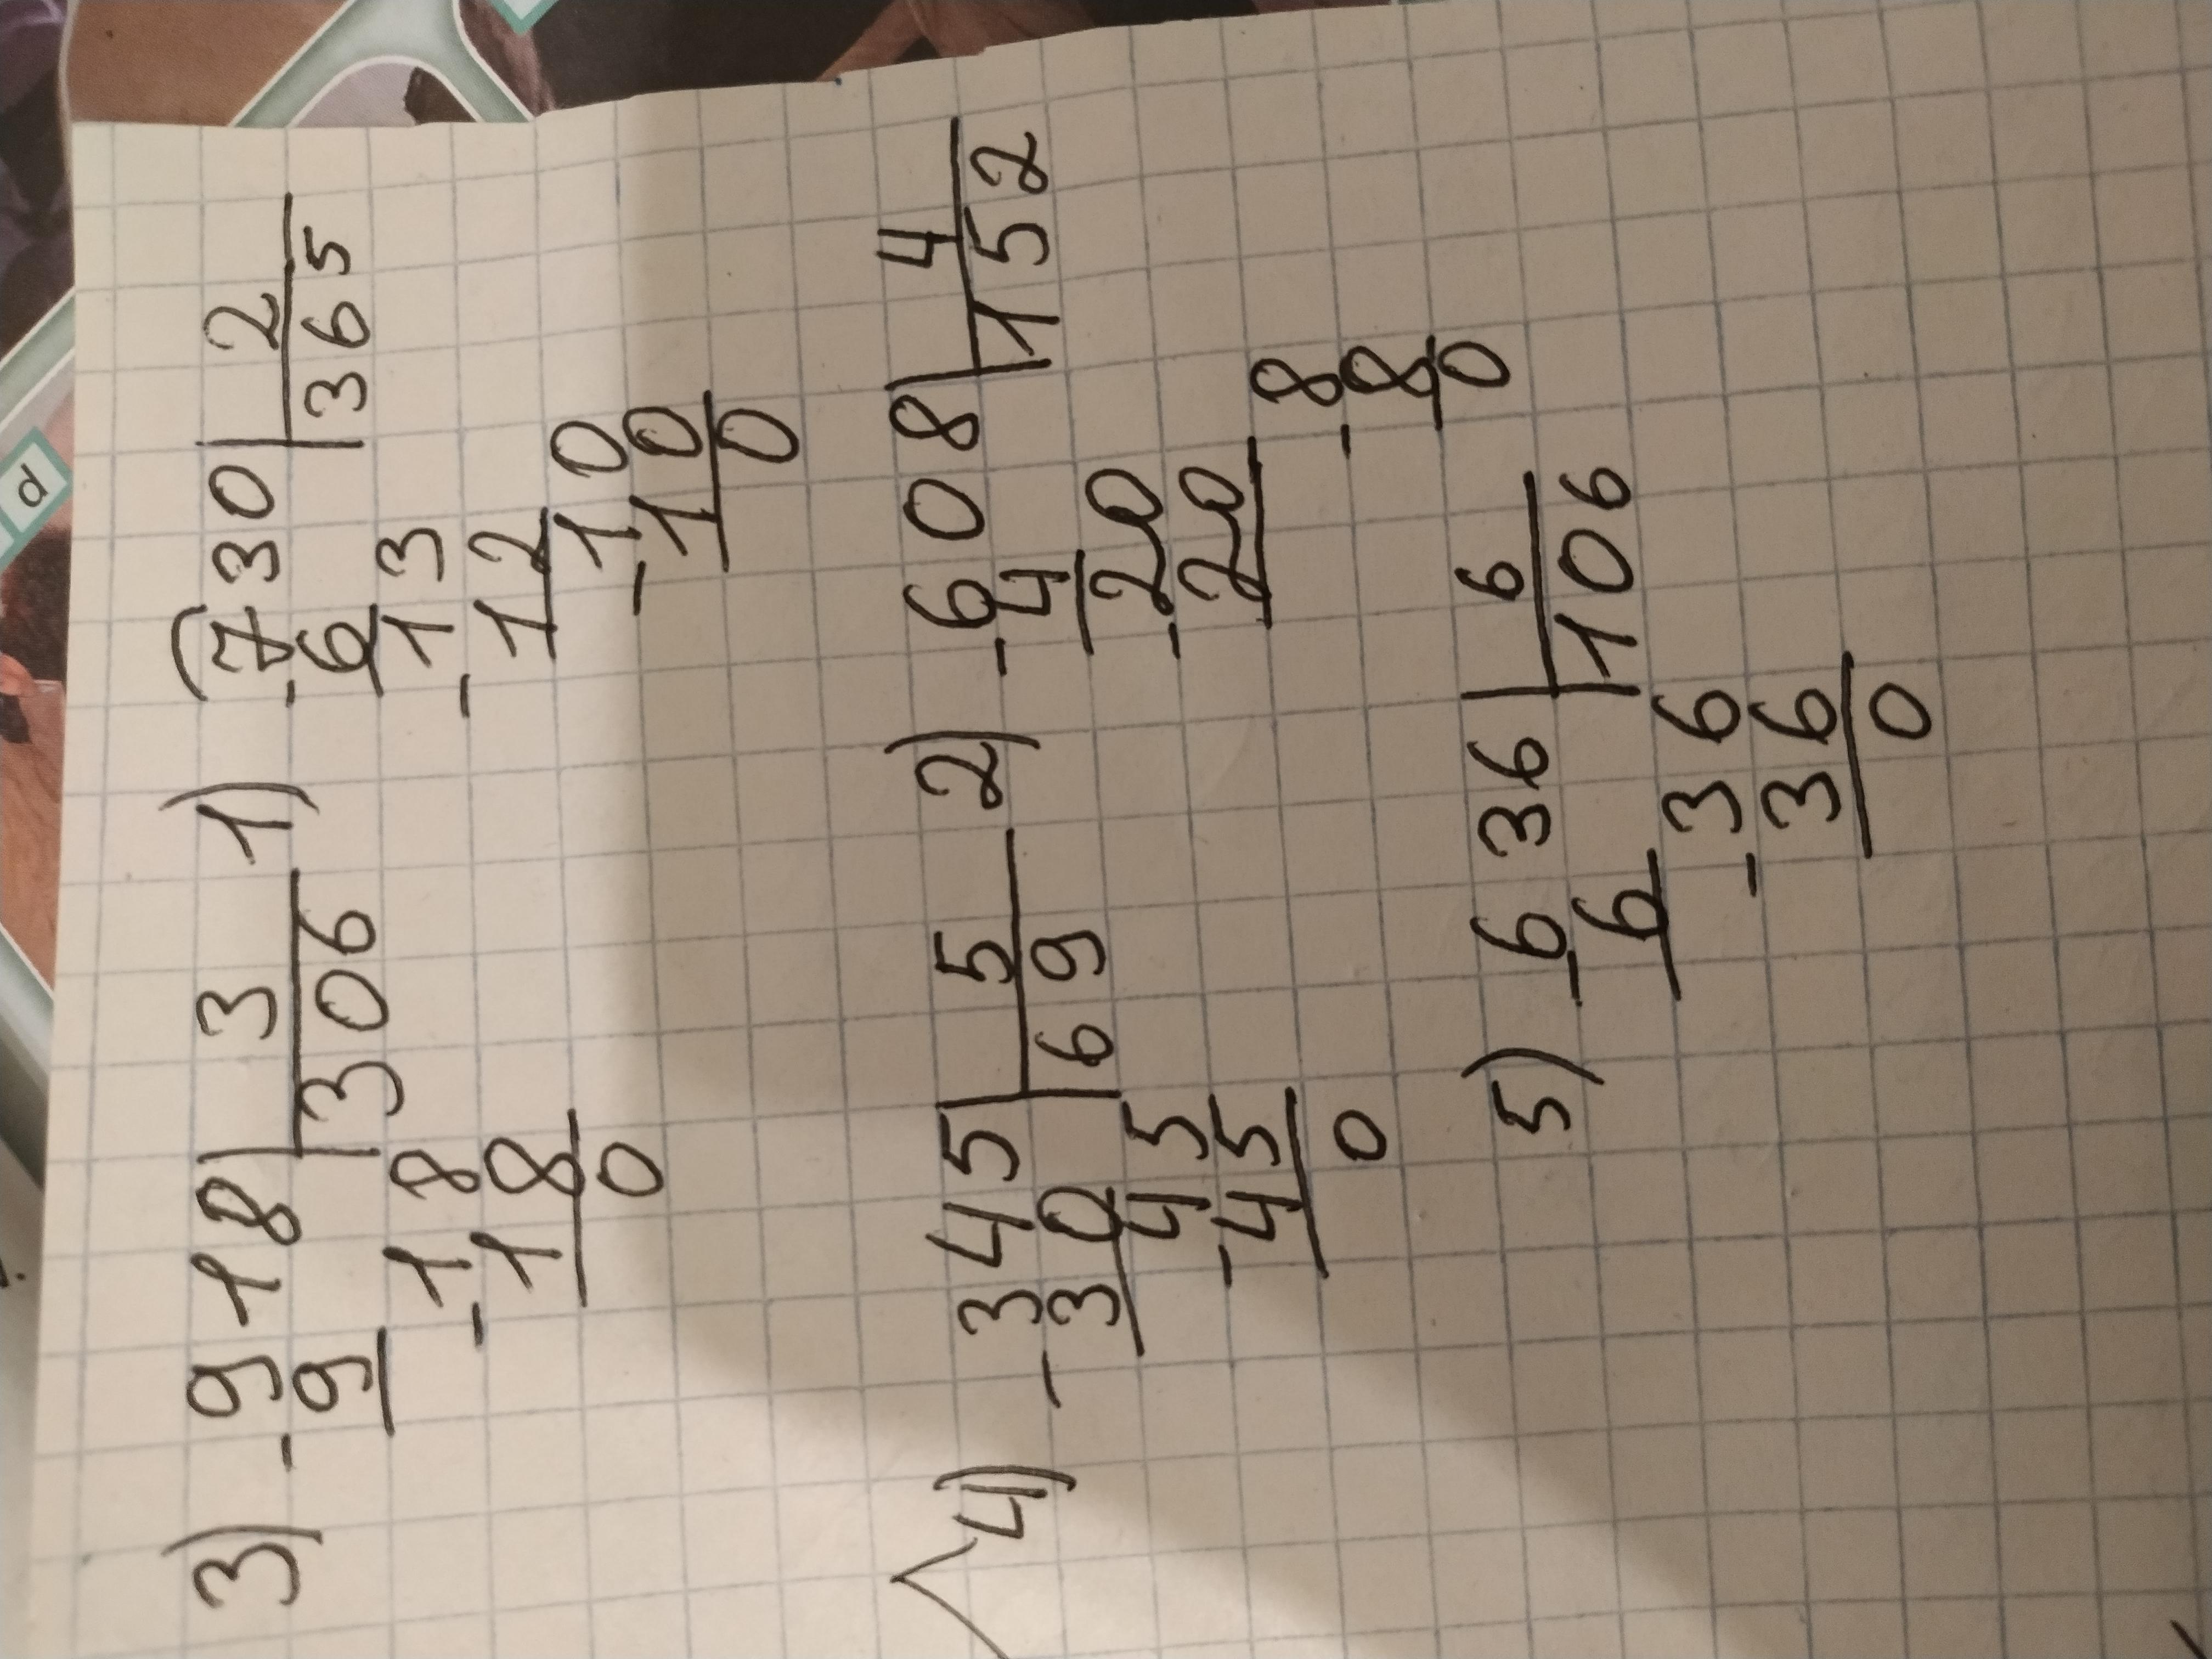 3) -918 | 3 1) -730 | 2
9 | 306 6 | 365
-18 -13
18 12
0 -10
10
0
4) -345 | 5 2) -608 | 4
30 | 69 4 | 152
-45 -20
45 20
0 -8
8
0
5) -636 | 6
6 | 106
-36
36
0
d